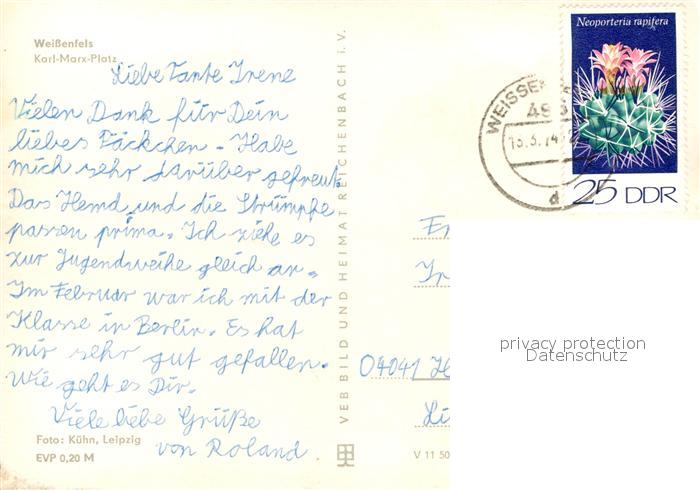 Weißenfels
Karl-Marx-Platz
Liebe Tante Irene
Vielen Dank für Dein
liebes Päckchen - Habe
mich sehr darüber gefreut.
Das Hemd und die Strümpfe
passen prima. Ich ziehe es
zur Jugendweihe gleich an.
Im Februar war ich mit der
Klasse in Berlin. Es hat
mir sehr gut gefallen.
Wie geht es Dir.
Viele liebe Grüße
von Roland
Foto: Kühn, Leipzig
EVP 0,20 M
VEB BILD UND HEIMAT REICHENBACH i. V.
V 11 50
04041
Neoporteria rapifera
25 DDR
d
privacy protection
Datenschutz